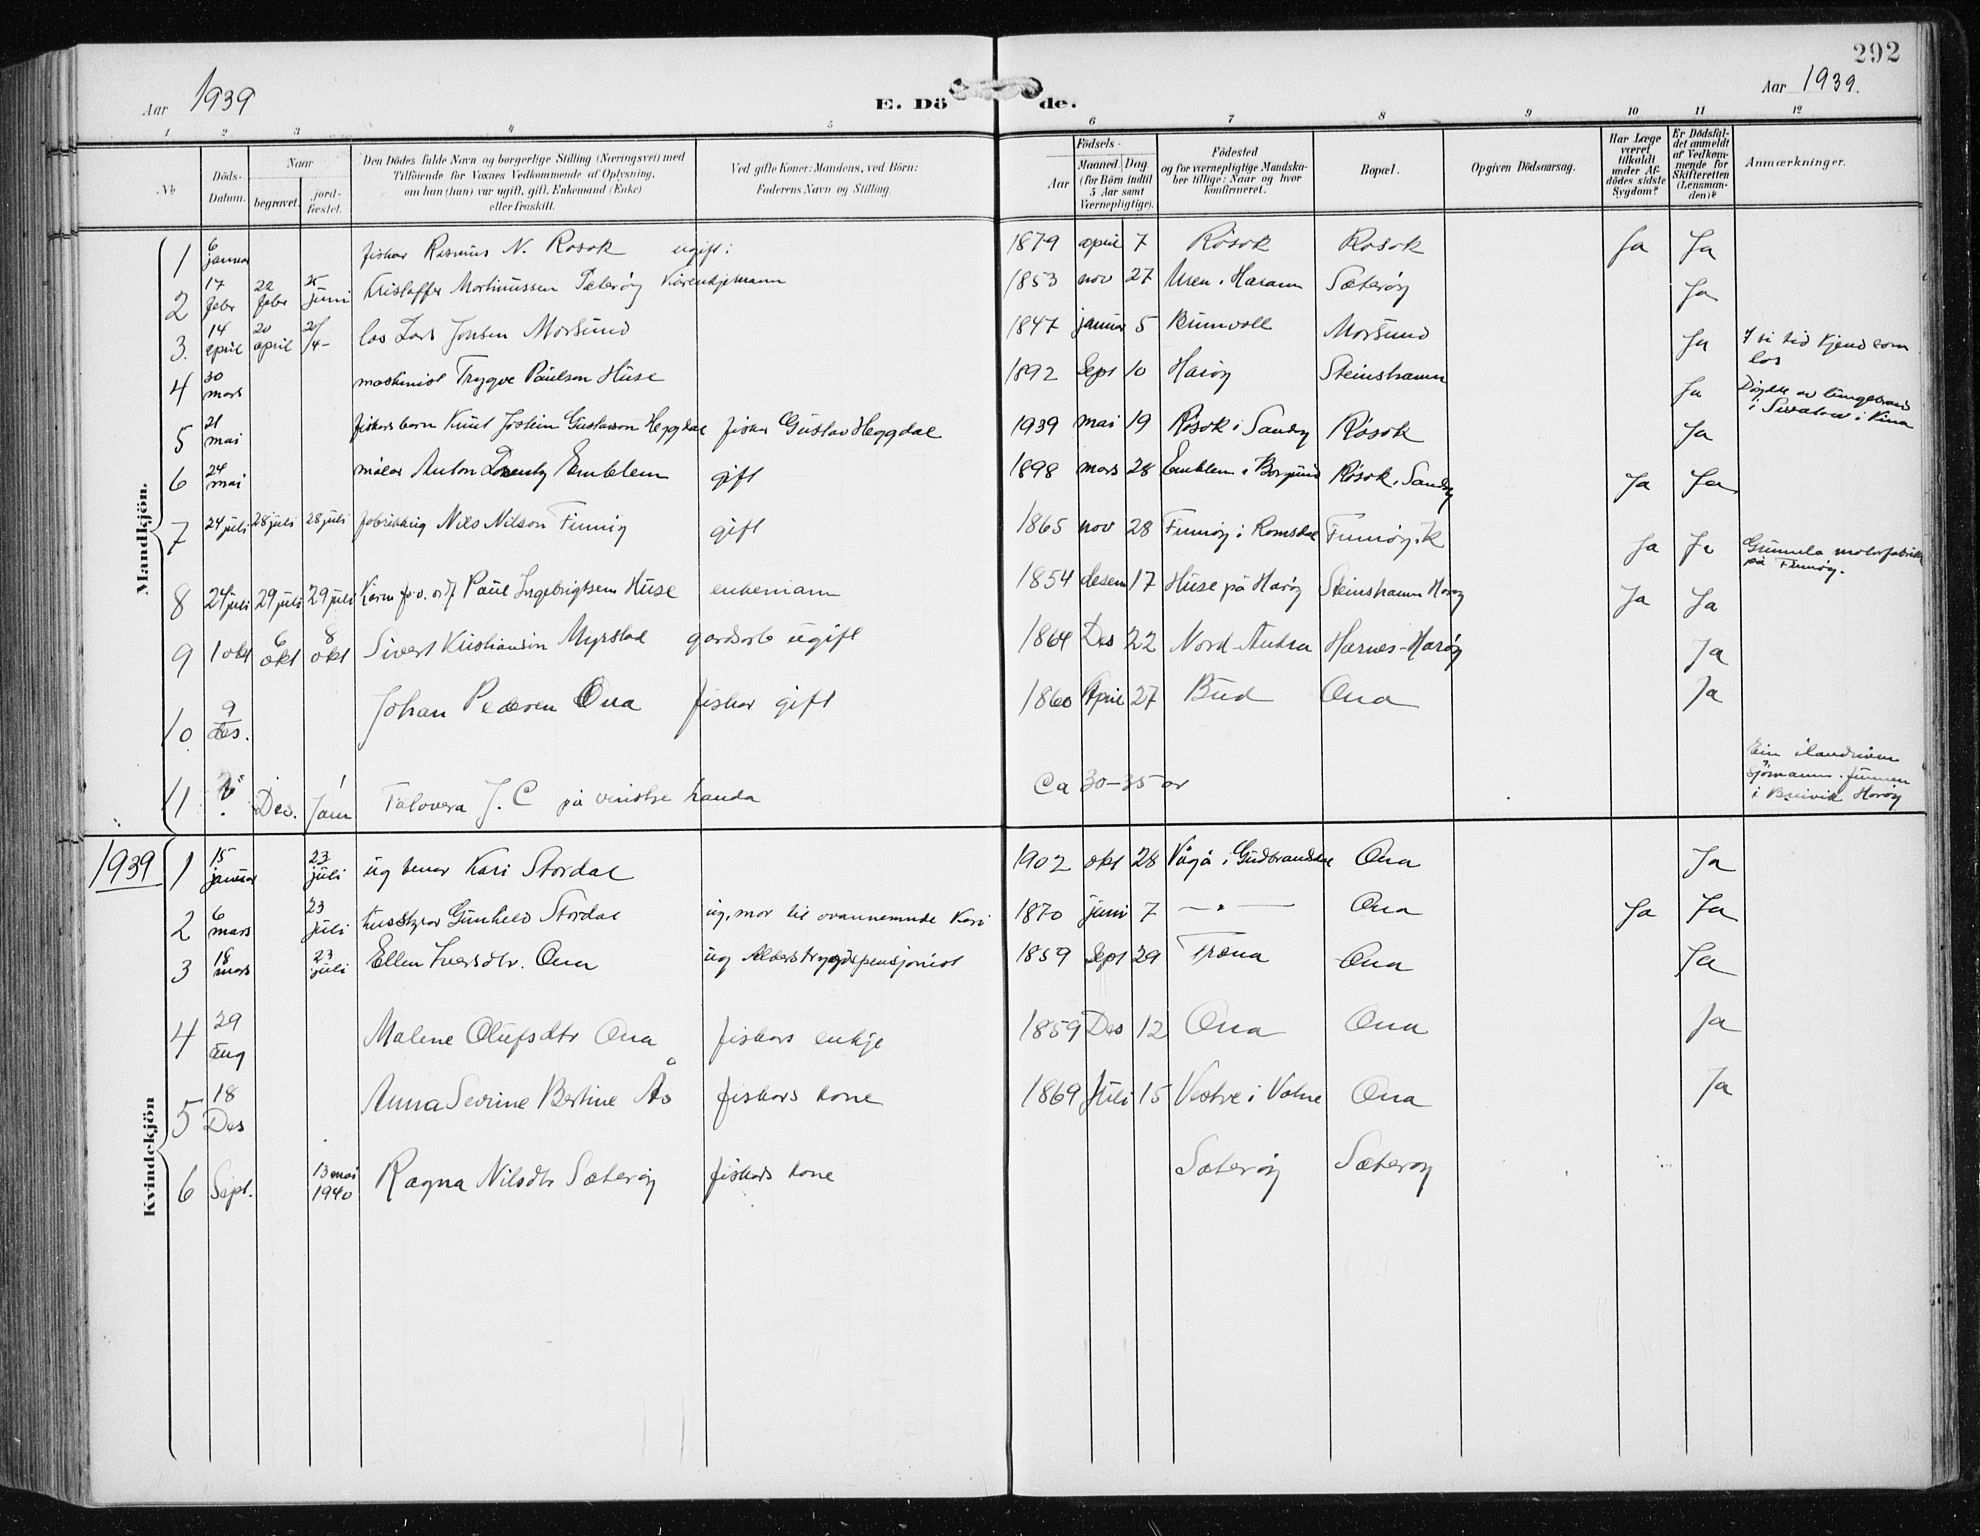 292
Aar 1939
E. Döde.
Aar 1939.
1 2 3 4 5 6 7 8 9 10 11 12
No
Döds-Datum.
Naar
begravet.
jord-fæstet.
Den Dödes fulde Navn og borgerlige Stilling (Næringsvei) med
Tilföiende for Voxnes Vedkommende af Oplysning,
om han (hun) var ugift, gift, Enkemand (Enke)
eller fraskilt.
Ved gifte Koner: Mandens, ved Börn:
Faderens Navn og Stilling.
Födsels-
Aar
Maaned Dag
(for Börn indtil
5 Aar samt
Værnepligtige).
Födested
og for værnepligtige Mandska-
ber tillige: Naar og hvor
konfirmeret.
Bopæl.
Opgiven Dödsaarsag.
Har Læge
været
tilkaldt
under Af-
dödes sidste
Sygdom?
Er Dödsfal-
det anmeldt
af Vedkom-
mende for
Skifteretten
(Lensman-
den)?
Anmærkninger.
Mandkjön.
1 6 januar fiskar Rasmus N. Rosok ugift 1879 april 7 Rösok Rosok Ja Ja
2 17 febr 22 febr 25 juni Kristoffer Martinussen Sæteröy 1853 nov 27 Uren i Haram Sæteröy Ja
3. 14 april 20 april 20/4- los Lars Jonsen Morsund 1847 januar 5 Morsund Ja I si tid kjend som los
4 30 mars maskinist Trygve Paulson Huse 1892 Sept 10 Haröy Steinshamn Ja i Kina
5 21 mai fiskarbarn Knut Jostein Gustavson Heggdal fiskar Gustav Heggdal 1939 mai 19 Rösok i Sandöy Rösok Ja
6 24 mai målar Anton Lorentz Emblem gift 1898 mars 28 Emblem i Borgund Rösok, Sandöy Ja Ja
7 24 juli 28 juli 28 juli Nils Nilson Finnöy gift 1865 nov 28 Finnöy i Romsdal Finnöy Ja Ja Gumla motorfabrikk på Finnöy.
8 24 juli 29 juli 29 juli Paul Ingebrigtsen Huse enkemann 1854 desem 17 Huse på Haröy Steinshamn Haröy Ja Ja
9 1 okt 6 okt 8 okt Sivert Kristiansen Myrstad gardsarb ugift 1864 Des 22 Nord-Aukra Harnes-Haröy Ja
10 9 des. Johan Pedersen Ona fiskar gift 1860 April 27 Bud Ona Ja
11 ? Des. Jan Talovera J. C på vinstre handa Ca 30-35 år Ein ilanddriven sjömann. funnen i Breivik Haröy
1939
Kvindekjön
1 15 januar 23 juli ug Kari Stordal 1902 okt 28 Vågå i Gudbrandsdal Ona Ja
2 6 mars 23 juli Gunhild Stordal ug, mor til ovannemnde Kari 1870 juni 7 —"— Ona Ja Ja
3 18 mars 23 juli Ellen Iversdtr. Ona ug Alderstrygdspensjonist 1859 Sept 29 Træna Ona Ja
4 29 Aug Malene Olufsdtr Ona fiskars enkje 1859 Des 12 Ona Ona Ja
5 18 Des Anna Sevrine Bertine Ås fiskars kone 1869 Juli 15 Vestre i Vatne Ona Ja
6 Sept. 13 mai 1940 Ragna Nilsdtr Sæteröy fiskars kone Sæteröy Sæteröy